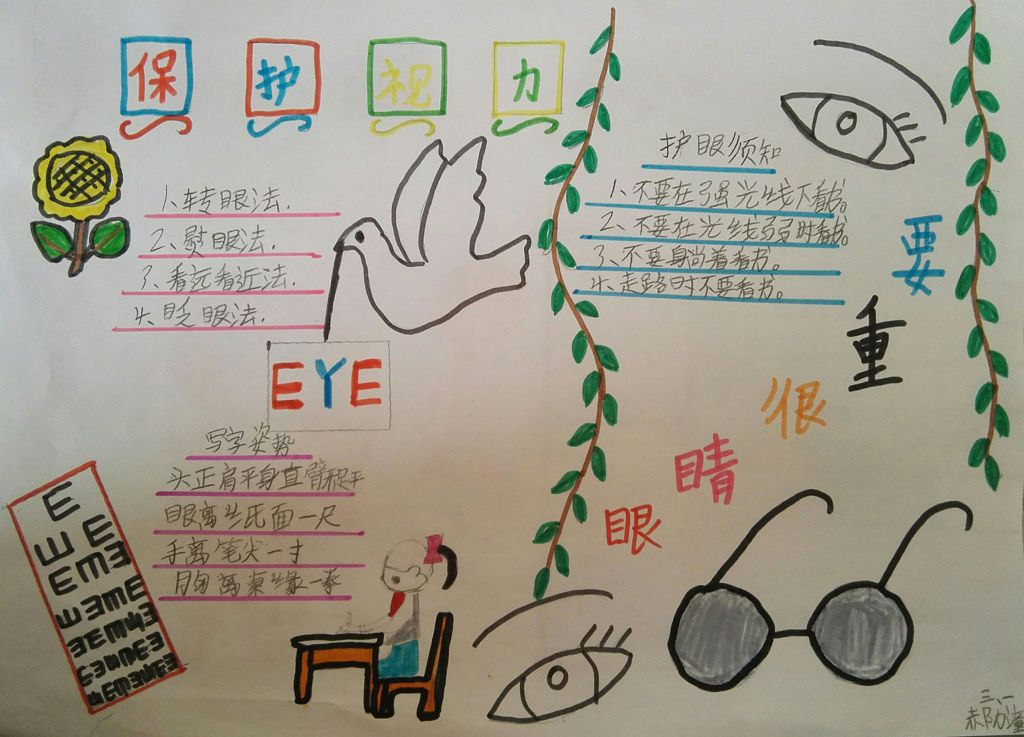 保护视力
1、转眼法.
2、熨眼法.
3、看远看近法.
4、眨眼法.
EYE
写字姿势
头正肩平身直臂平
眼离纸面一尺
手离笔尖一寸
胸离桌缘一拳
E
护眼须知
1、不要在强光线下看书。
2、不要在光线弱时看书。
3、不要躺着看书。
4、走路时不要看书。
眼睛很重要
三、一